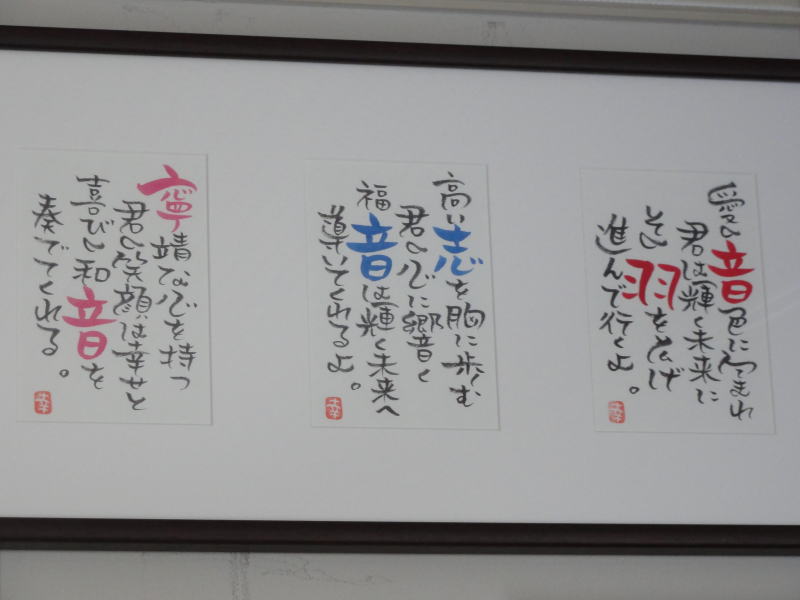 愛の音色に包まれ
君は輝く未来に
その羽を広げ
進んで行くよ。
幸
高い志を胸に歩む
君の心に響く
福音は輝く未来へ
導いてくれるよ。
幸
寧靖な心を持つ
君の笑顔は幸せと
喜びの和音を
奏でてくれる。
幸